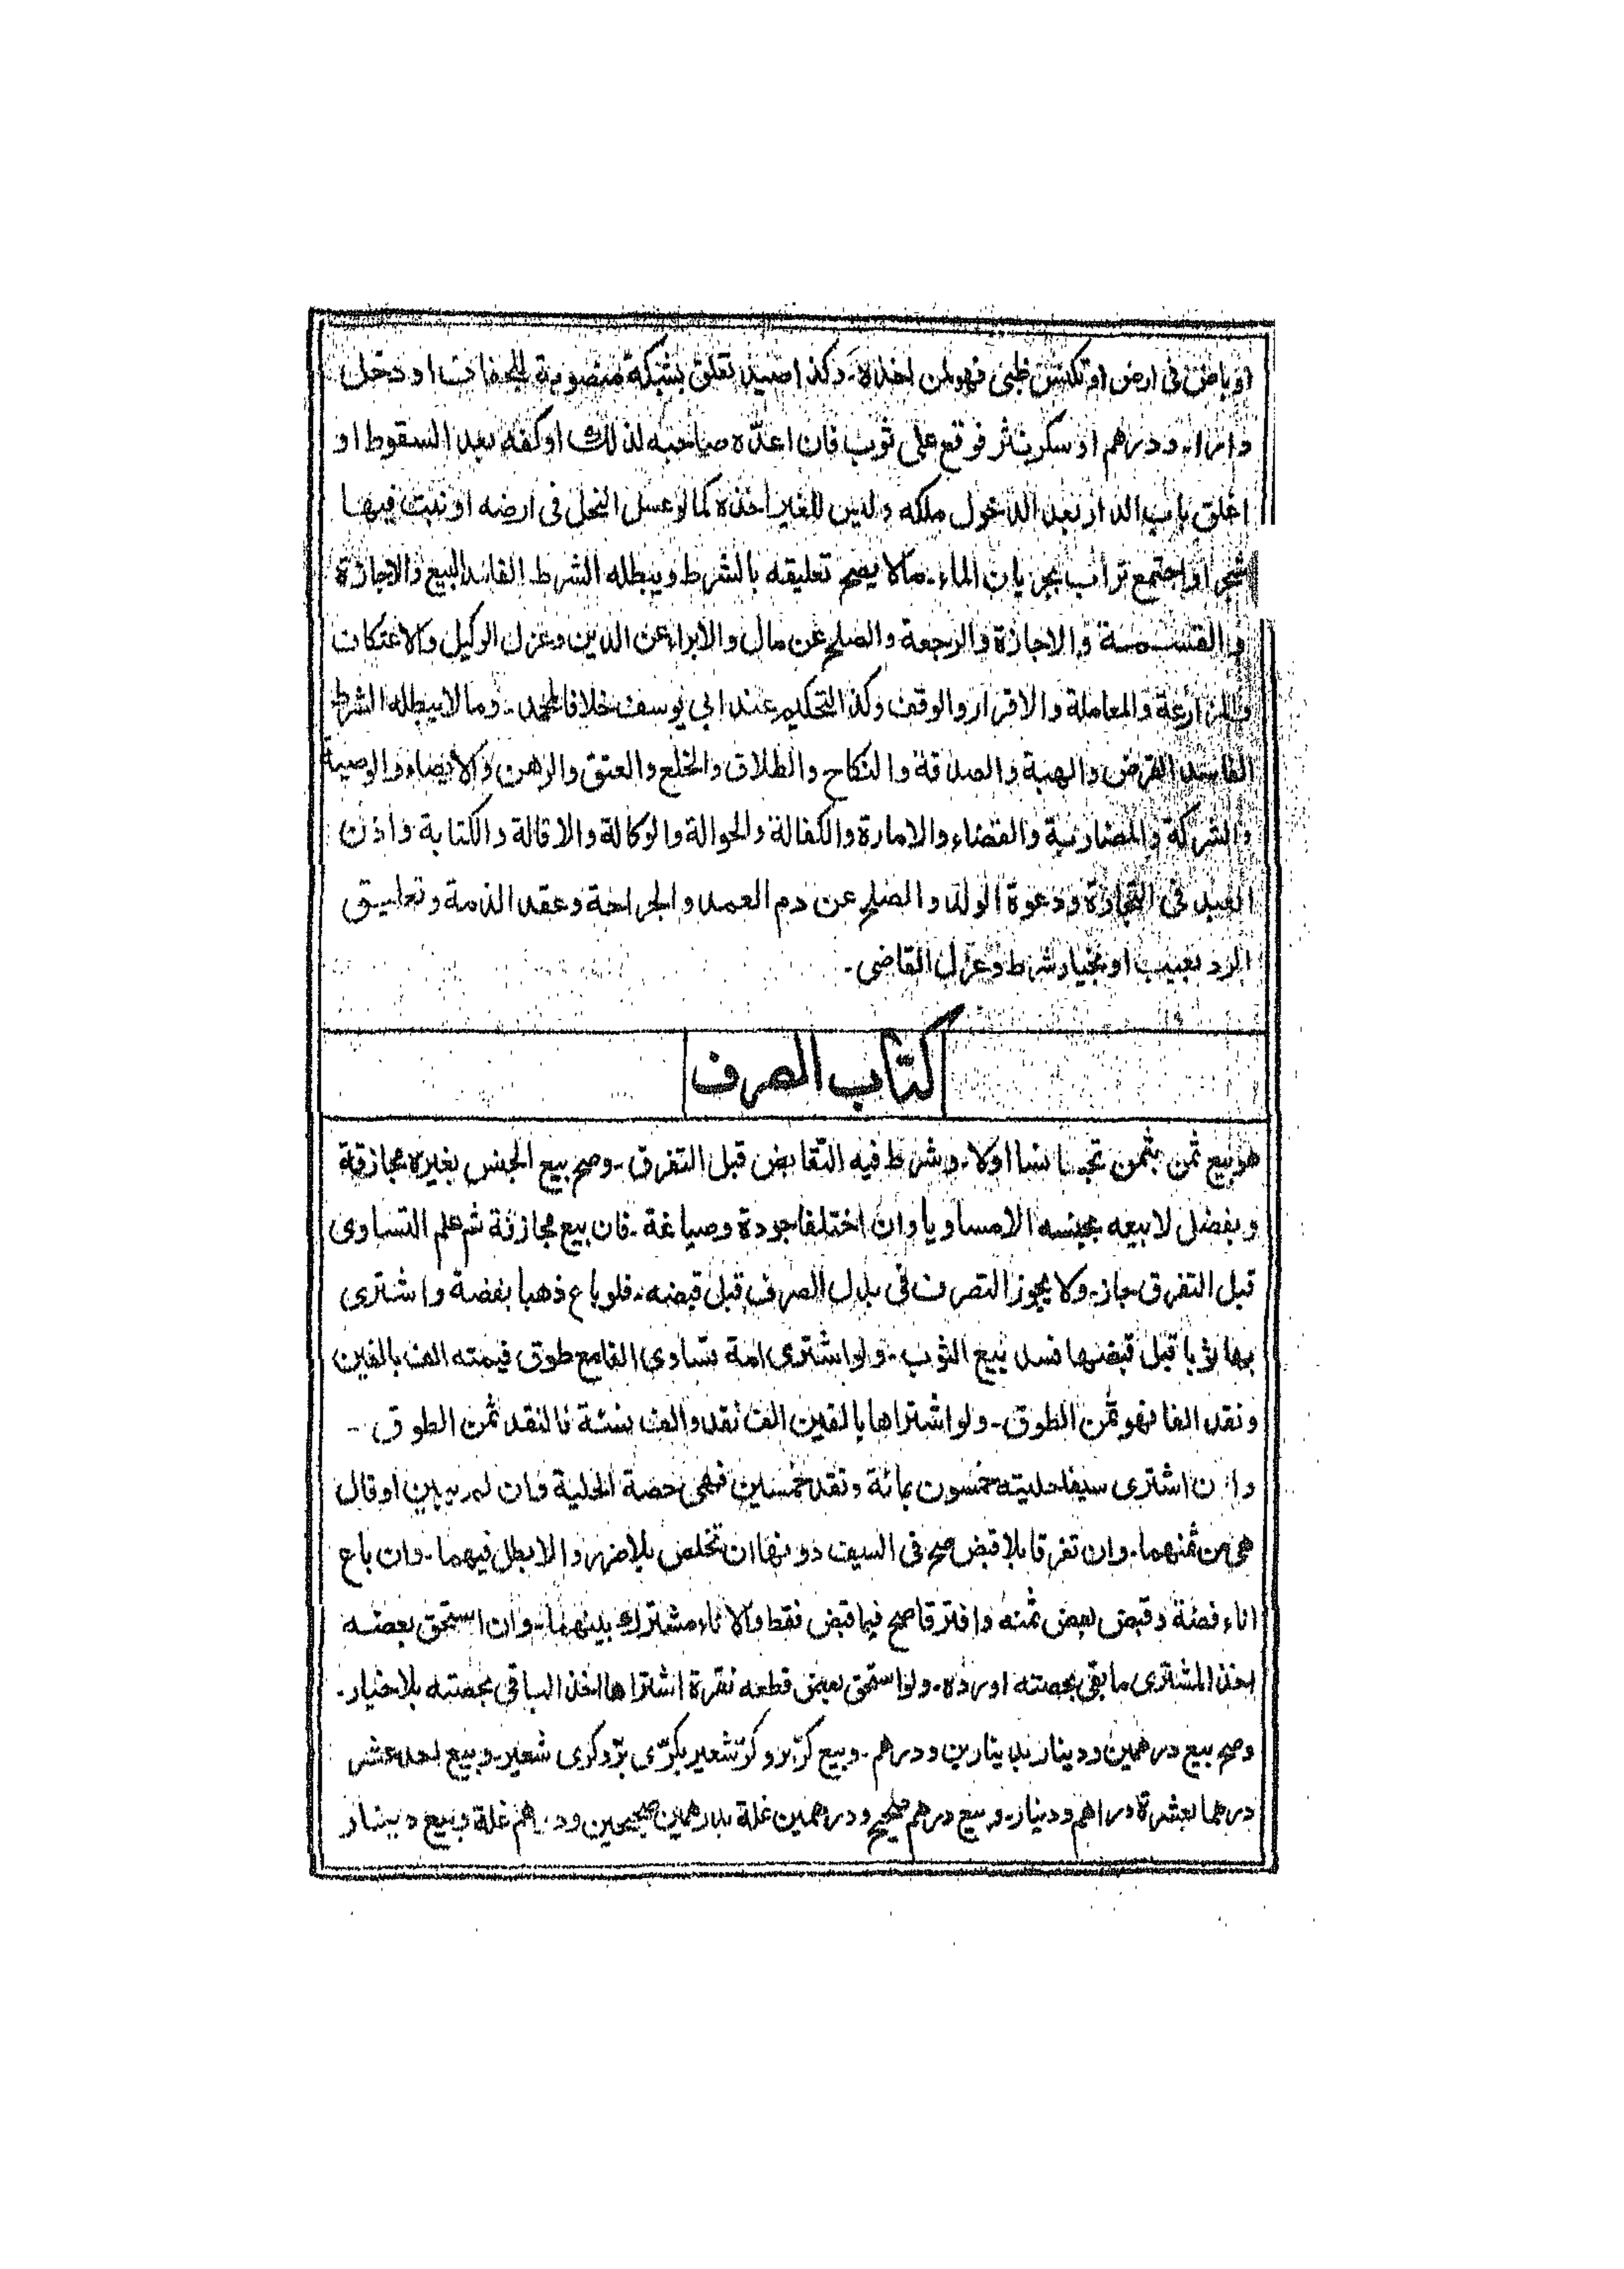 او باض فى ارض او تكنس ظبى فهو لمن اخذه۔ وكذا صيد تعلق بشبكة منصوبة للجفاف او دخل
دارا۔ ودرهم او سكر نثر فوقع على ثوب فان اعده صاحبه لذلك او كفه بعد السقوط او
اغلق باب الدار بعد الدخول ملكه وليس للغير اخذه كما لو عسل النحل فى ارضه او نبت فيها
شجر او اجتمع تراب بجريان الماء۔ مالا يصح تعليقه بالشرط ويبطله الشرط الفاسد البيع والاجارة
والقسمة والاجازة والرجعة والصلح عن مال والابراء عن الدين وعزل الوكيل والاعتكاف
والمزارعة والمعاملة والاقرار والوقف وكذا التحكيم عند ابى يوسف خلافا لمحمد۔ وما لا يبطله الشرط
الفاسد القرض والهبة والصدقة والنكاح والطلاق والخلع والعتق والرهن والايصاء والوصية
والشركة والمضاربة والقضاء والامارة والكفالة والحوالة والوكالة والاقالة والكتابة واذن
العبد فى التجارة ودعوة الولد والصلح عن دم العمد والجراحة وعقد الذمة وتعليق
الرد بعيب او بخيار شرط وعزل القاضى۔
كتاب الصرف
هو بيع ثمن بثمن تجانسا اولا۔ وشرط فيه التقابض قبل التفرق۔ وصح بيع الجنس بغيره مجازفة
وبفضل لا بيعه بجنسه الا مساويا وان اختلفا جودة وصياغة۔ فان بيع مجازفة ثم علم التساوى
قبل التفرق جاز۔ ولا يجوز التصرف فى بدل الصرف قبل قبضه۔ فلو باع ذهبا بفضة واشترى
بها ثوبا قبل قبضها فسد بيع الثوب۔ ولو اشترى امة تساوى الفا مع طوق قيمته الف بالفين
ونقد الفا فهو ثمن الطوق۔ ولو اشتراها بالفين الف نقد والف نسئة فالنقد ثمن الطوق۔
وان اشترى سيفا حليته خمسون بمائة ونقد خمسين فهى حصة الحلية وان لم يبين او قال
هى من ثمنهما۔ وان تفرقا بلا قبض صح فى السيف دونها ان تخلص بلا ضرر والا بطل فيهما۔ وان باع
اناء فضة وقبض بعض ثمنه وافترقا صح فيما قبض فقط والاناء مشترك بينهما۔ وان استحق بعضه
اخذ المشترى ما بقى بحصته او رده۔ ولو استحق بعض قطعه نقرة اشتراها اخذ الباقى بحصته بلا خيار۔
وصح بيع درهمين ودينار بدينارين ودرهم۔ وبيع كرّ بر وكرّ شعير بكرّى برّ وكرى شعير۔ وبيع احد عشر
درهما بعشرة دراهم ودينار۔ وبيع درهم صحيح ودرهمين غلة بدرهمين صحيحين ودرهم غلة وبيع دينار